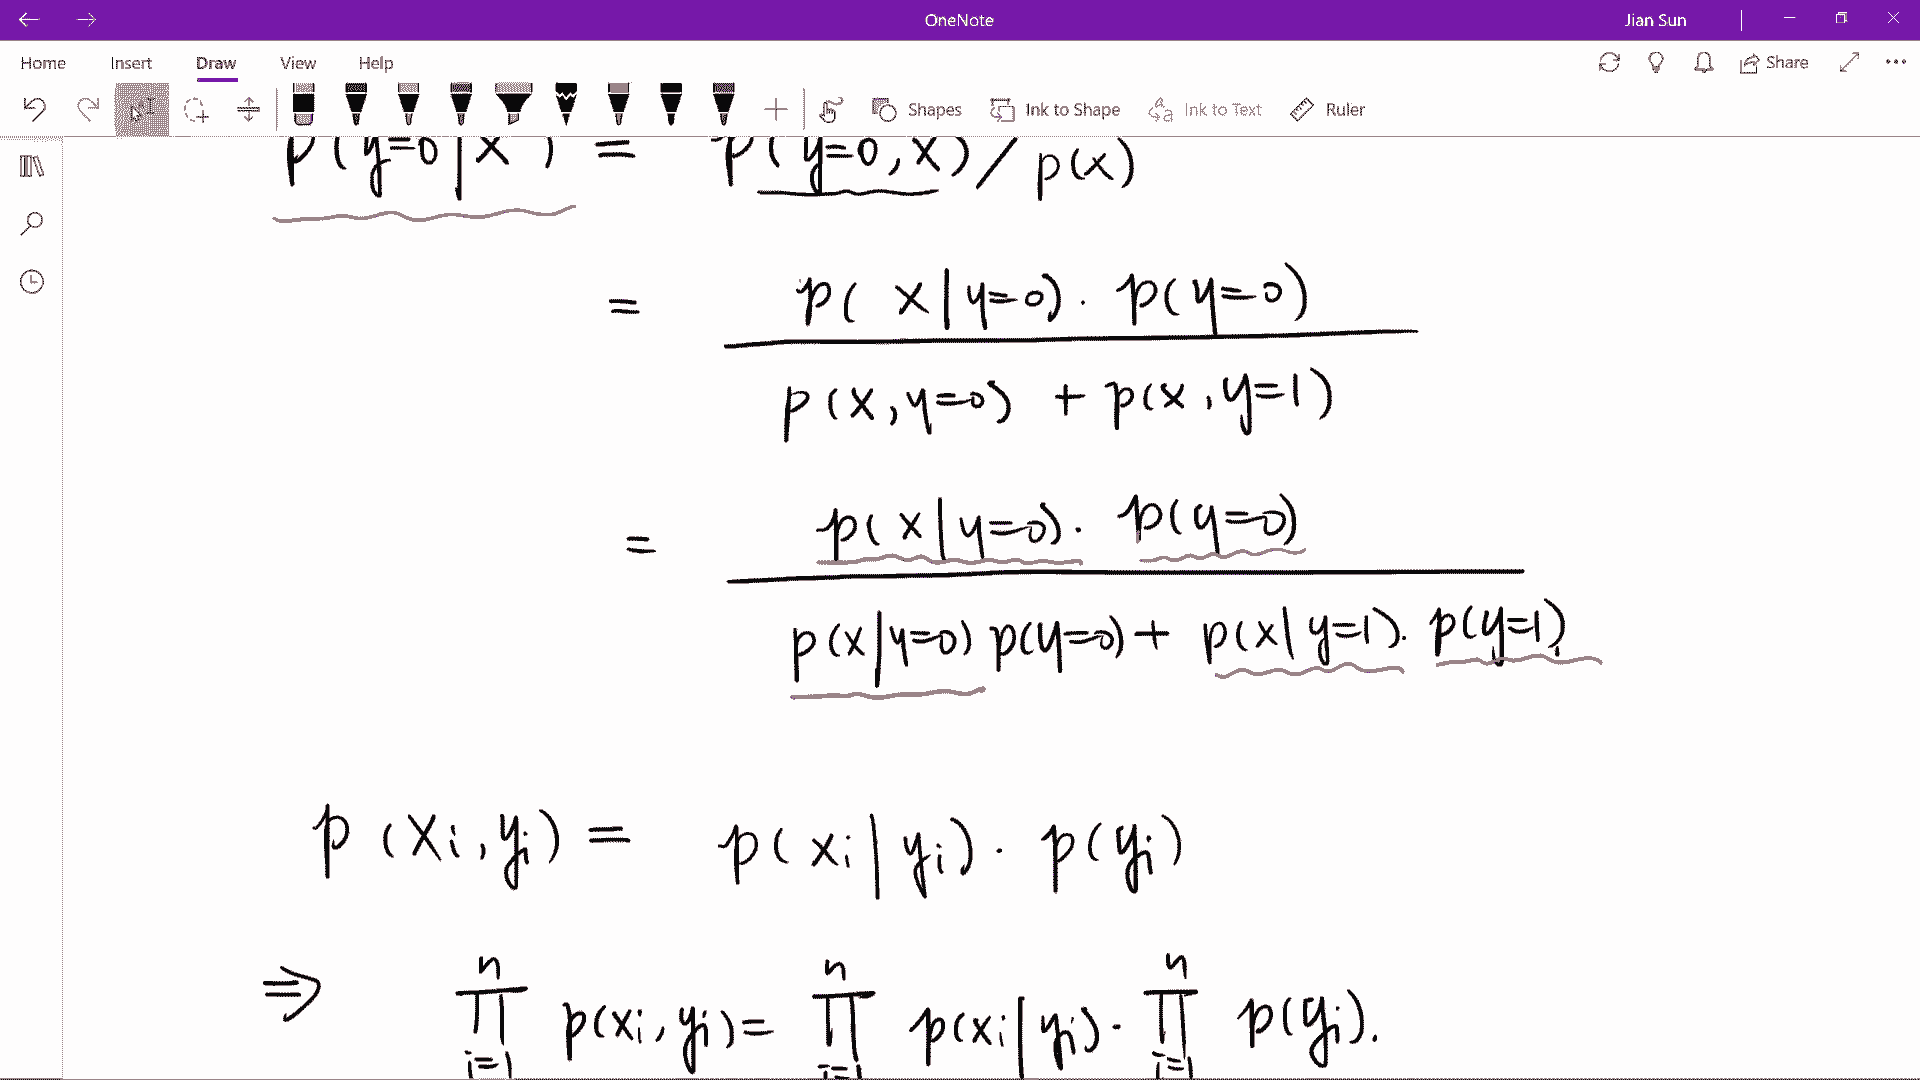 OneNote
Jian Sun
Home Insert Draw View Help
Share
Shapes Ink to Shape Ink to Text Ruler
p(y=0|x) = p(y=0,x)/p(x)
= p(x|y=0)·p(y=0)
p(x,y=0) + p(x,y=1)
= p(x|y=0)·p(y=0)
p(x|y=0)p(y=0)+p(x|y=1)·p(y=1)
p(xi,yi) = p(xi|yi)·p(yi)
n n n
⇒ ∏ p(xi,yi)= ∏ p(xi|yi)·∏ p(yi).
i=1 i=1 i=1